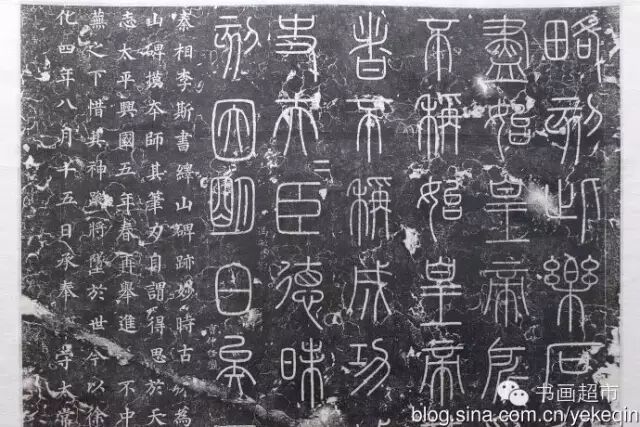 略刻此樂石
盡始皇帝所
不稱始皇帝
者不稱成功
史夫二臣德昧
刻因明白矣
秦相李斯書繹山碑跡妙時古為
山碑摸本師其筆力自謂得思於天
志太平興國五年春再舉進不中
蕪之下惜其神蹤將墜於世今以徐
化四年八月十五日承奉守太常
书画超市
blog.sina.com.cn/yekeqin